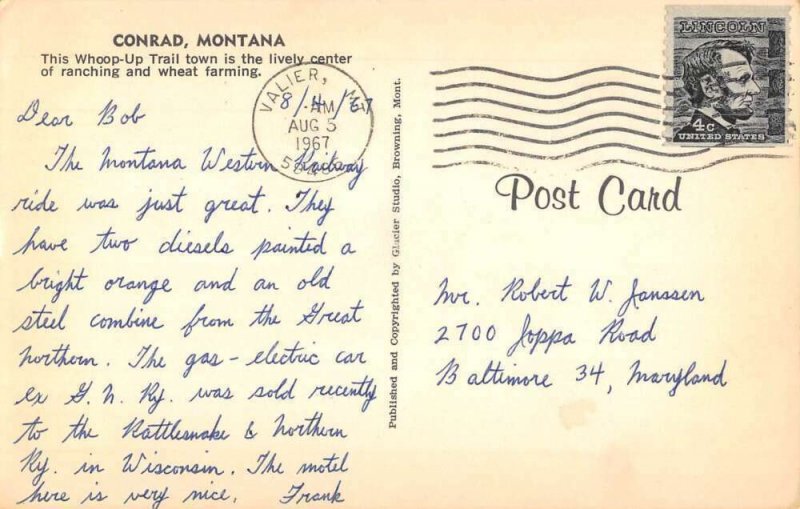 CONRAD, MONTANA
This Whoop-Up Trail town is the lively center
of ranching and wheat farming.
8/4/67
Dear Bob
The Montana Western Railway
ride was just great. They
have two diesels painted a
bright orange and an old
steel combine from the Great
Northern. The gas-electric car
ex G. N. Ry. was sold recently
to the Rattlesnake & Northern
Ry. in Wisconsin. The motel
here is very nice. Frank
Published and Copyrighted by Glacier Studio, Browning, Mont.
VALIER, MT
AM
AUG 5
1967
LINCOLN
4c
UNITED STATES
Post Card
Mr. Robert W. Janssen
2700 Joppa Road
Baltimore 34, Maryland